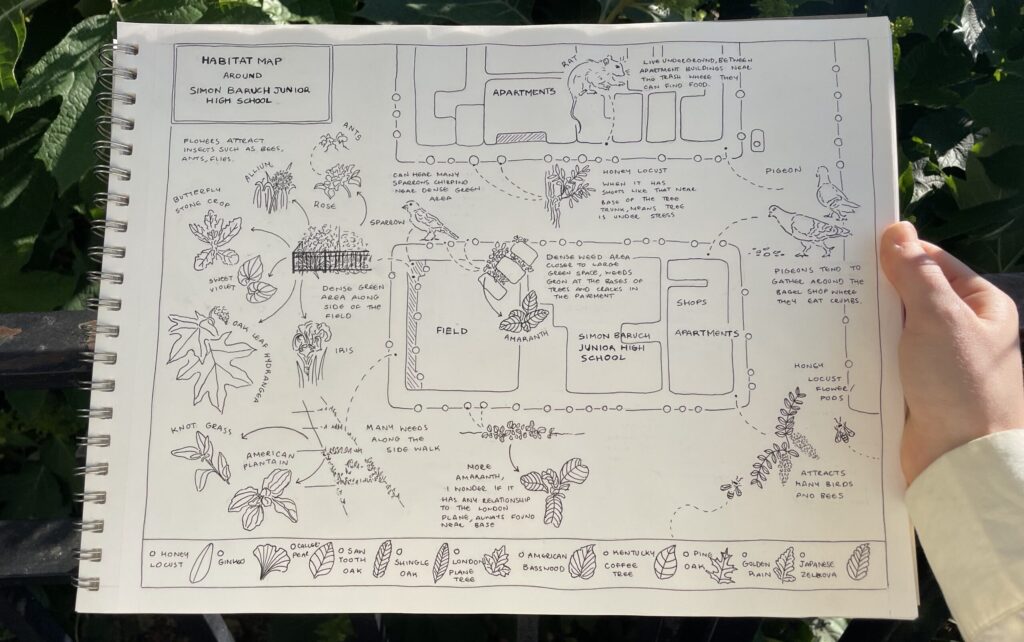 HABITAT MAP
AROUND
SIMON BARUCH JUNIOR
HIGH SCHOOL.
APARTMENTS
RAT
LIVE UNDERGROUND, BETWEEN
APARTMENT BUILDINGS NEAR
THE TRASH WHERE THEY
CAN FIND FOOD.
FLOWERS ATTRACT
INSECTS SUCH AS BEES,
ANTS, FLIES.
ANTS
ALLIUM
ROSE
BUTTERFLY
STONE CROP
SWEET
VIOLET
OAK LEAF HYDRANGEA
CAN HEAR MANY
SPARROWS CHIRPING
NEAR DENSE GREEN
AREA
SPARROW
HONEY LOCUST
WHEN IT HAS
SHOOTS LIKE THAT NEAR
BASE OF THE TREE
TRUNK, MEANS TREE
IS UNDER STRESS
PIGEON
PIGEONS TEND TO
GATHER AROUND THE
BAGEL SHOP WHERE
THEY EAT CRUMBS.
DENSE GREEN
AREA ALONG
SIDE OF THE
FIELD
IRIS
FIELD
DENSE WEED AREA
CLOSER TO LARGE
GREEN SPACE, WEEDS
GROW AT THE BASES OF
TREES AND CRACKS IN
THE PAVEMENT
AMARANTH
SIMON BARUCH
JUNIOR HIGH
SCHOOL
SHOPS
APARTMENTS
KNOT GRASS
AMERICAN
PLANTAIN
MANY WEEDS
ALONG THE
SIDE WALK
MORE
AMARANTH,
I WONDER IF IT
HAS ANY RELATIONSHIP
TO THE LONDON
PLANE, ALWAYS FOUND
NEAR BASE
HONEY
LOCUST
FLOWER/
PODS
ATTRACTS
MANY BIRDS
AND BEES
HONEY
LOCUST
GINKGO
CALLERY
PEAR
SAW
TOOTH
OAK
SHINGLE
OAK
LONDON
PLANE
TREE
AMERICAN
BASSWOOD
KENTUCKY
COFFEE
TREE
PIN
OAK
GOLDEN
RAIN
JAPANESE
ZELKOVA